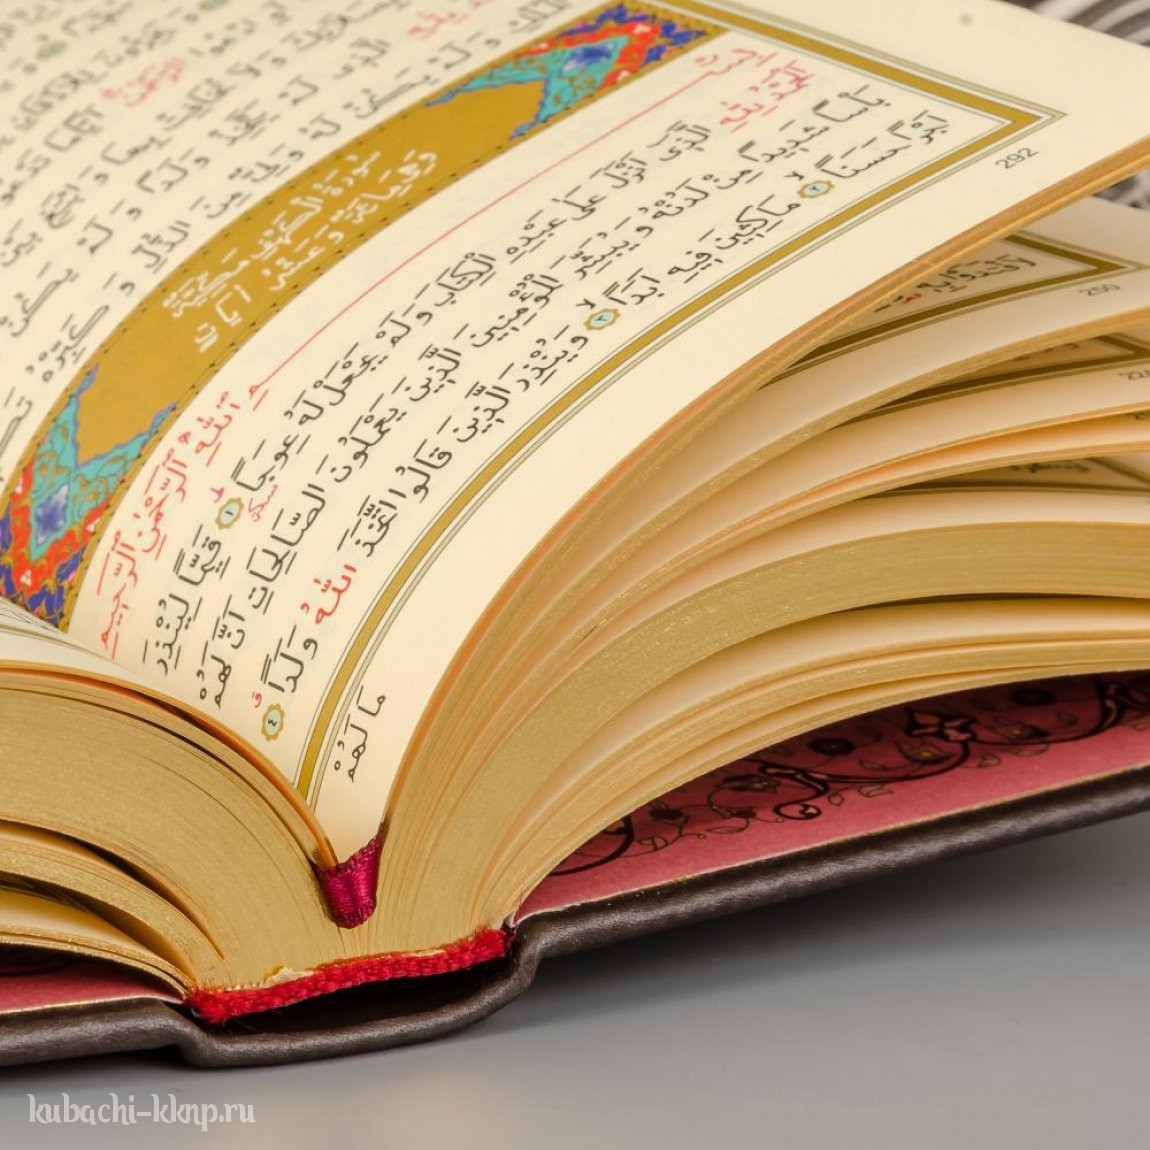 اَيًّا مَا
وَلَا تُخَافِتْ بِهَا وَابْتَغِ بَيْنَ
لَمْ يَتَّخِذْ وَلَدًا وَلَمْ يَكُنْ
وَلَمْ يَكُنْ لَهُ وَلِيٌّ مِنَ الذُّلِّ وَكَبِّرْهُ
سُورَةُ الْكَهْفِ مَكِّيَّةٌ
وَهِيَ مِائَةٌ وَعَشْرُ اٰيَاتٍ
بِسْمِ اللّٰهِ الرَّحْمٰنِ الرَّحِيمِ
اَلْحَمْدُ لِلّٰهِ الَّذِى اَنْزَلَ عَلٰى عَبْدِهِ الْكِتَابَ وَلَمْ يَجْعَلْ لَهُ عِوَجًا ١ قَيِّمًا لِيُنْذِرَ
بَأْسًا شَدِيدًا مِنْ لَدُنْهُ وَيُبَشِّرَ الْمُؤْمِنِينَ الَّذِينَ يَعْمَلُونَ الصَّالِحَاتِ اَنَّ لَهُمْ
اَجْرًا حَسَنًا ٢ مَاكِثِينَ فِيهِ اَبَدًا ٣ وَيُنْذِرَ الَّذِينَ قَالُوا اتَّخَذَ اللّٰهُ وَلَدًا ٤
مَا لَهُمْ
292
250
kubachi-kknp.ru